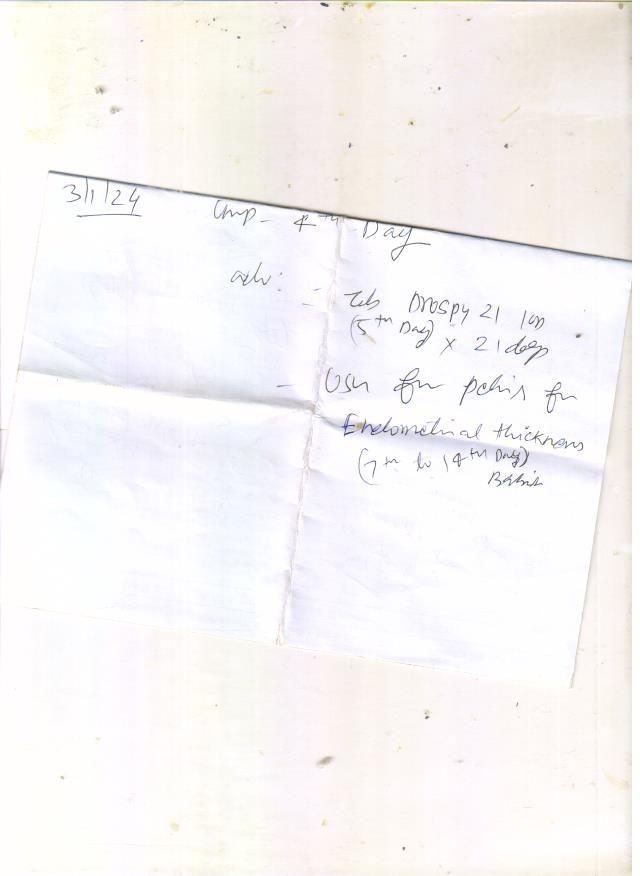 3/1/24
Lmp - 4th - Day
adv:
- Tab Drospy 21 1 od
(5th Day) x 21 days
- USG for pelvis for
Endometrial thickness
(7th to 14th Day)